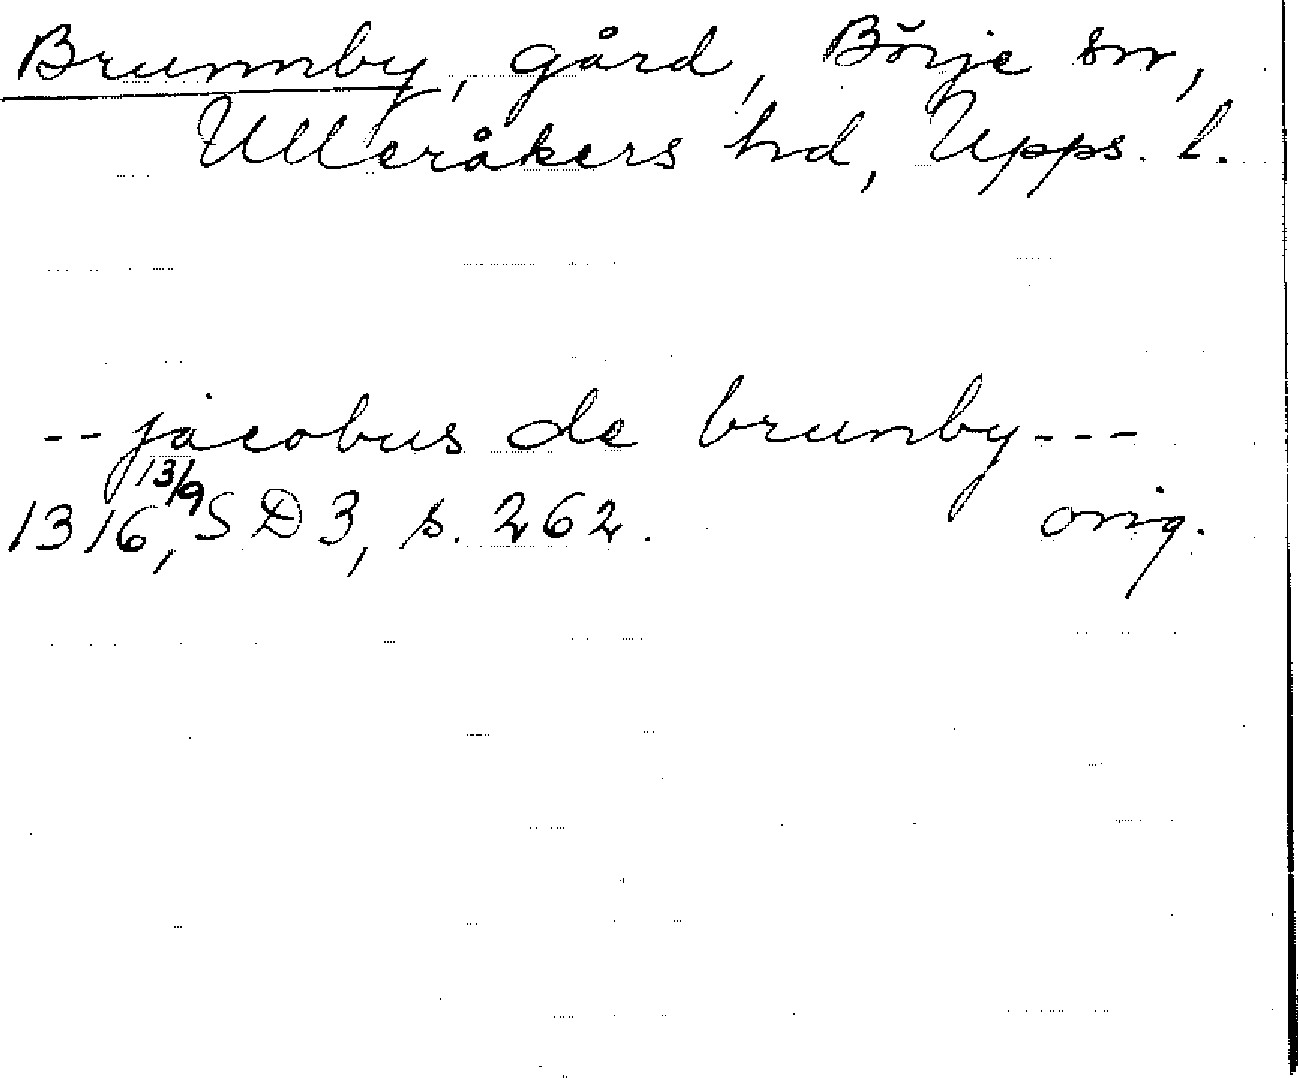 Brunnby, gård, Börje sn,
Ulleråkers hd, Upps. l.
-- jacobus de brunby ---
1316, 13/9 SD 3, s. 262. orig.